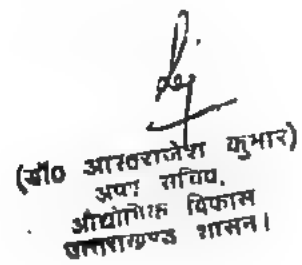 (डॉ० आर० राजेश कुमार)
अपर सचिव,
औद्योगिक विकास
उत्तराखण्ड शासन।